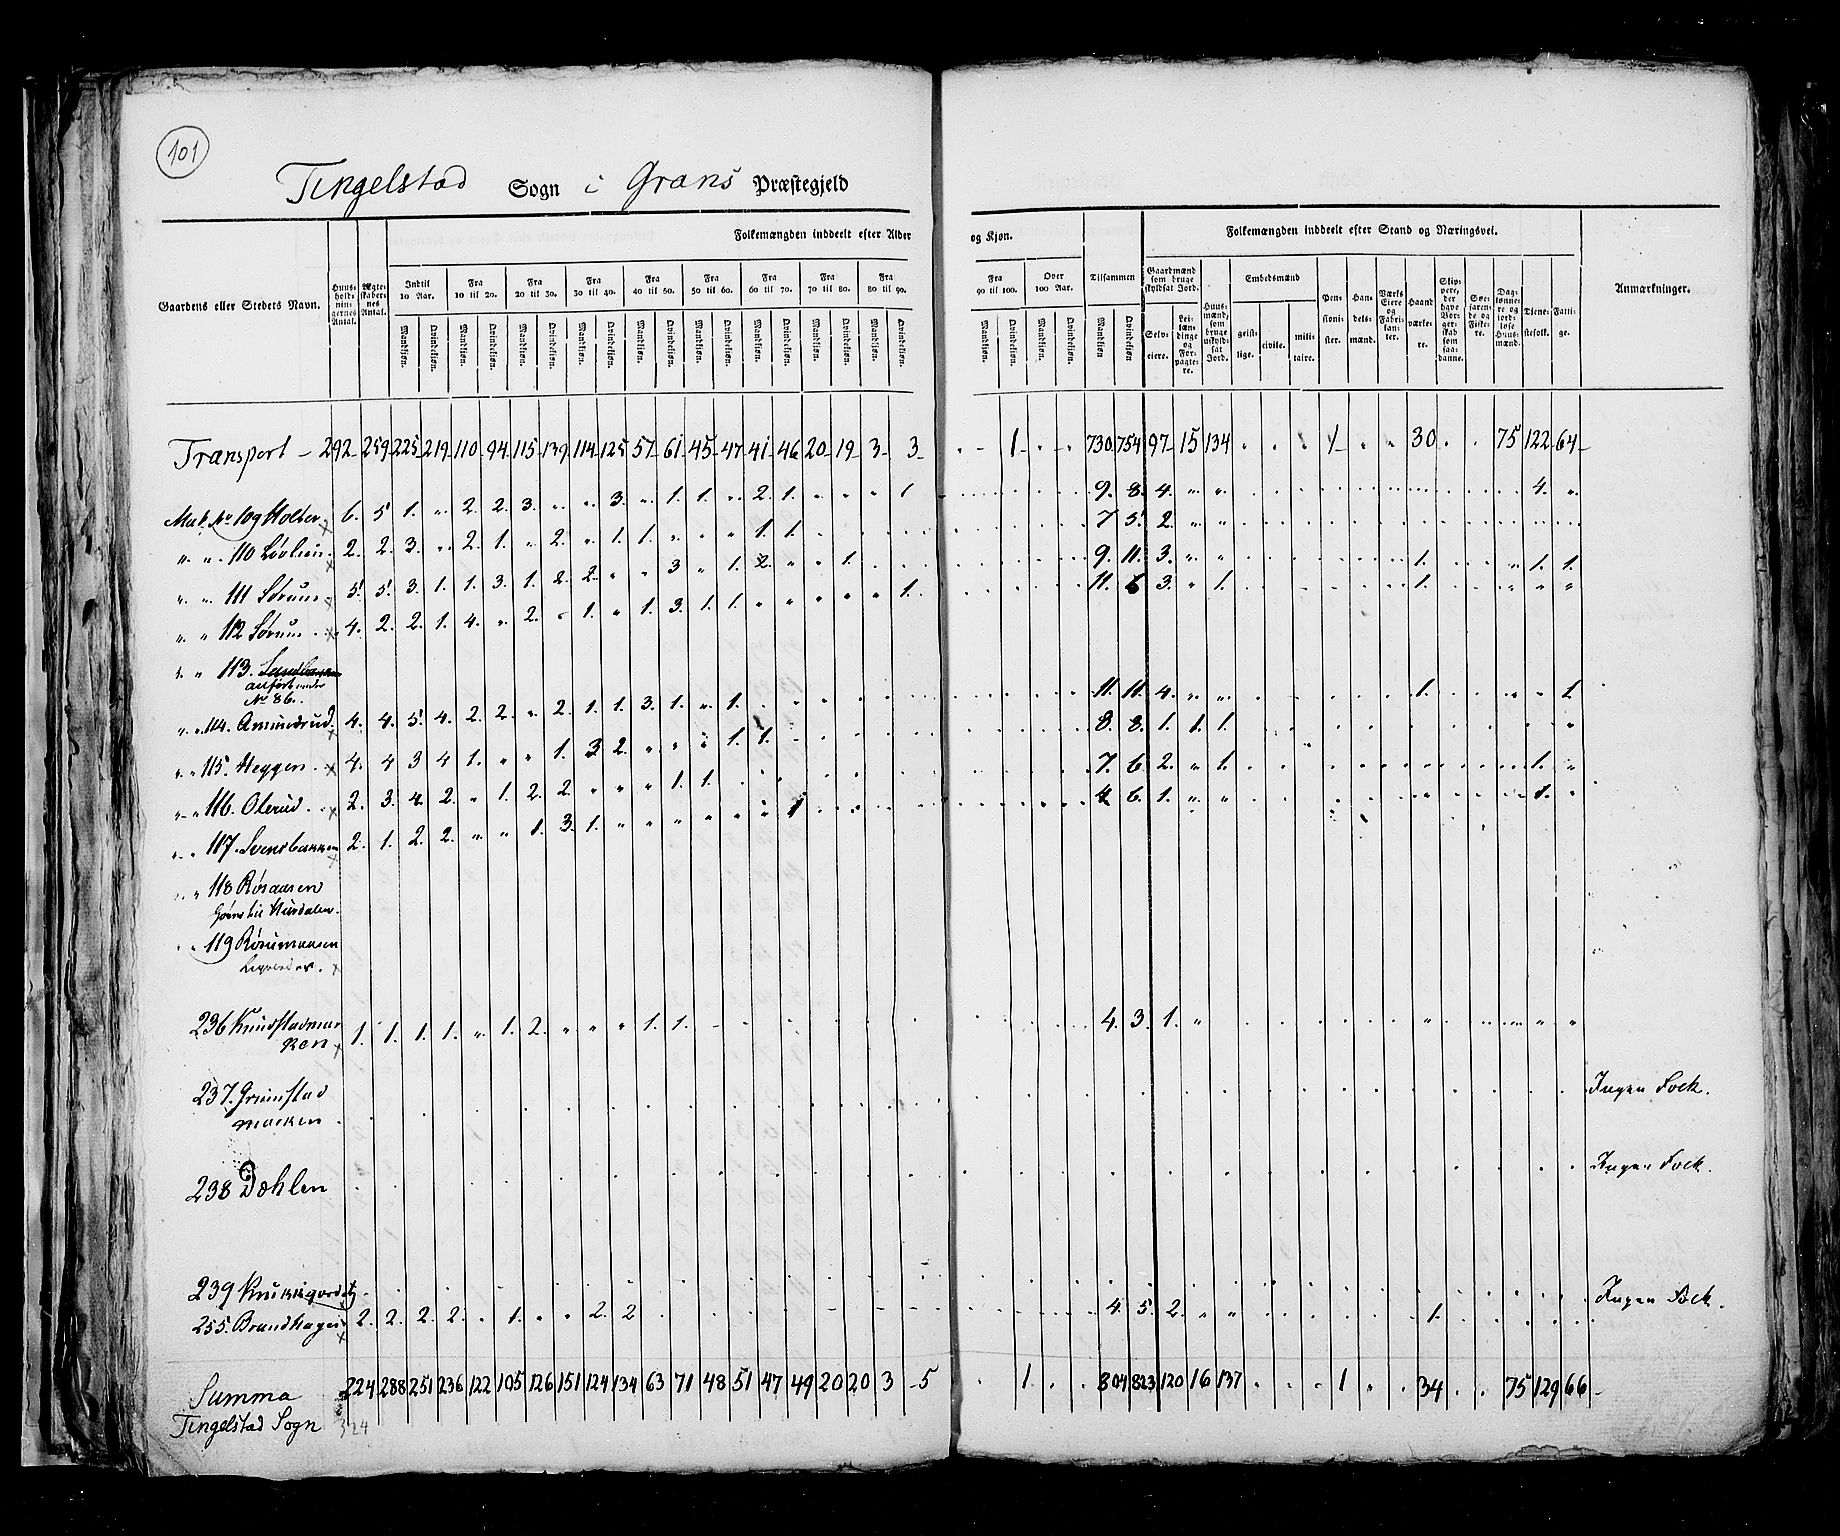 101
Tingelstad Sogn i Grans Præstegjeld
Folkemængden inddeelt efter Alder og Kjøn. Tilsammen Folkemængden inddeelt efter Stand og Næringsvei.
Gaardens eller Stedets Navn. Huusholdningernes Antal. Ægteskabernes Antal. Indtil 10 Aar. Fra 10 til 20. Fra 20 til 30. Fra 30 til 40. Fra 40 til 50. Fra 50 til 60. Fra 60 til 70. Fra 70 til 80. Fra 80 til 90. Fra 90 til 100. Over 100 Aar. Anmærkninger.
Mandkjøn Qvindekjøn Mandkjøn Qvindekjøn Mandkjøn Qvindekjøn Mandkjøn Qvindekjøn Mandkjøn Qvindekjøn Mandkjøn Qvindekjøn Mandkjøn Qvindekjøn Mandkjøn Qvindekjøn Mandkjøn Qvindekjøn. Mandkjøn Qvindekjøn Mandkjøn Qvindekjøn Mandkjøn Qvindekjøn
Gaardmænd som bruge skyldsat Jord. Selveiere. Leilændinge og Forpagtere. Huusmænd, som bruge uskyldsat Jord. Embedsmænd geistlige. civile. militaire. Pensionister. Handelsmænd. Værks Eiere og Fabrikanter. Haandværkere. Skippere, der have Borgerskab som saadanne. Søefarende og Fiskere. Daglønnere og jordløse Huusmænd. Tjenestefolk. Fattige.
Transport – 292 259 225 219 110 94 115 139 114 125 57 61 45 47 41 46 20 19 3 3 . - 1 . . 730 754 97 15 134 . . . 1 . . 30 . . 75 122 64
Mat. No 109 Holter 6. 5. 1. „ 2. 2. 3. „ „ 3. „ 1. 1. „ 2. 1. „ „ „ 1 9. 8. 4. „ „ 4. „
„ „ 110 Løvlien 2. 2. 3. „ 2. 1. „ 2. „ 1. 1. „ „ „ 1. 1. 7 5. 2. „ „
„ „ 111 Sørum 5. 5. 3. 1. 1. 3. 1. 2. 2. „ „ 3 „ 1. 2. „ „ 1. 9. 11. 3. „ „ 1. „ 1. 1.
„ „ 112 Sørum 4. 2. 2. 1. 4. „ 2. „ 1. „ 1. 3. 1. 1. „ „ „ „ „ 1. 11. 6 3. „ 1. 1. „ „ „
„ „ 113.
anført under
No 86.
„ „ 114. Amundrud 4. 4. 5. 4. 2. 2. „ 2. 1. 1. 3. 1. „ 1. 11. 11. 4. „ „ 1. „ „ 1.
„ „ 115. Heggen 4. 4 3 4 1. „ „ 1. 3 2. „ „ „ 1. 1. 8. 8. 1. 1. 1.
„ „ 116. Olerud 2. 3. 4. 2. „ 1. 2. 2. „ „ „ 1. 1. 7. 6. 2. „ 1. 1. „
„ „ 117. Svensbakken 2. 1. 2. 2. „ „ 1. 3. 1. „ „ „ „ „ „ 1 4 6. 1. „ „ 1.
„ „ 118 Røsaasen
Hurdalen.
„ „ 119
236 Knudstadmarken 1. 1. 1. 1. „ 1. 2. „ „ „ 1. 1. 4. 3. 1. „
237. Grimstad Ingen Folk.
marken
238 Dæhlen Ingen Folk.
239 Ingen Folk.
255. Brandhagen 2. 2. 2. 2. „ 1. „ „ 2. 2 4. 5. 2. „ „ 1.
Summa 224 288 251 236 122 105 126 151 124 134 63 71 48 51 47 49 20 20 3 5 1 804 823 120 16 137 1 34 75 129 66
Tingelstad Sogn 324